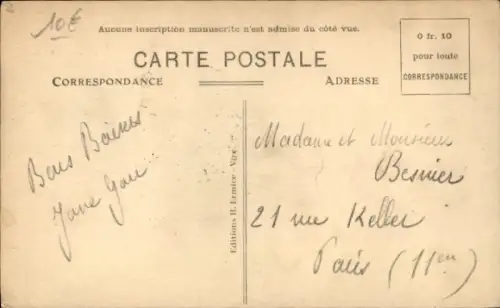 10€
Aucune inscription manuscrite n'est admise du côté vue.
CARTE POSTALE
CORRESPONDANCE
ADRESSE
0 fr. 10
pour toute
CORRESPONDANCE
Bons Baisers
Editions H. Ermice - 
Madame et Monsieur
Besnier
21 rue Keller
Paris (11en)